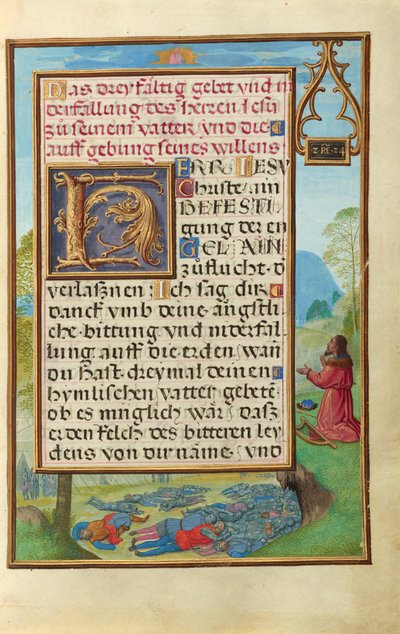 Das dreyfältig gebet vnd in
derfallung des herren Iesu
zu seinem vatter vnd die
auffgebung seines willens
HERR IESV
Christe, ein
BEFESTI
gung der en
GEL AIN
zuflucht d
verlasznen: Ich sag dir
danck vmb deine ängstli
che bittung vnd niderfal
lung auff die erden, wan
du hast dreymal deinen
hymlischen vatter gebetē
ob es müglich wär, dasz
er den kelch des bitteren ley
dens von dir näme, vnd
2·RE·24